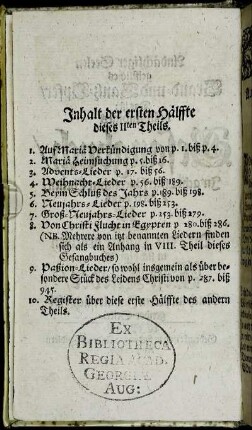 Inhalt der ersten Hälffte
dieses IIten Theils.
1. Auf Mariä Verkündigung von p. 1. biß p. 4.
2. Mariä Heimsuchung p. 5. biß 16.
3. Advents-Lieder p. 17. biß 56.
4. Weihnacht-Lieder p. 56. biß 189.
5. Beym Schluß des Jahrs p. 189. biß 198.
6. Neujahrs-Lieder p. 198. biß 253.
7. Groß-Neujahrs-Lieder p. 253. biß 279.
8. Von Christi Flucht in Egypten p. 280. biß 286.
(NB. Mehrere von itzt benannten Liedern finden
sich als ein Anhang in VIII. Theil dieses
Gesangbuches)
9. Paßion-Lieder / so wohl insgemein als über be-
sondere Stück des Leidens Christi von p. 287. biß
945.
10. Register über diese erste Hälffte des andern
Theils.
EX
BIBLIOTHECA
REGIA ACAD.
GEORGIÆ
AUG: